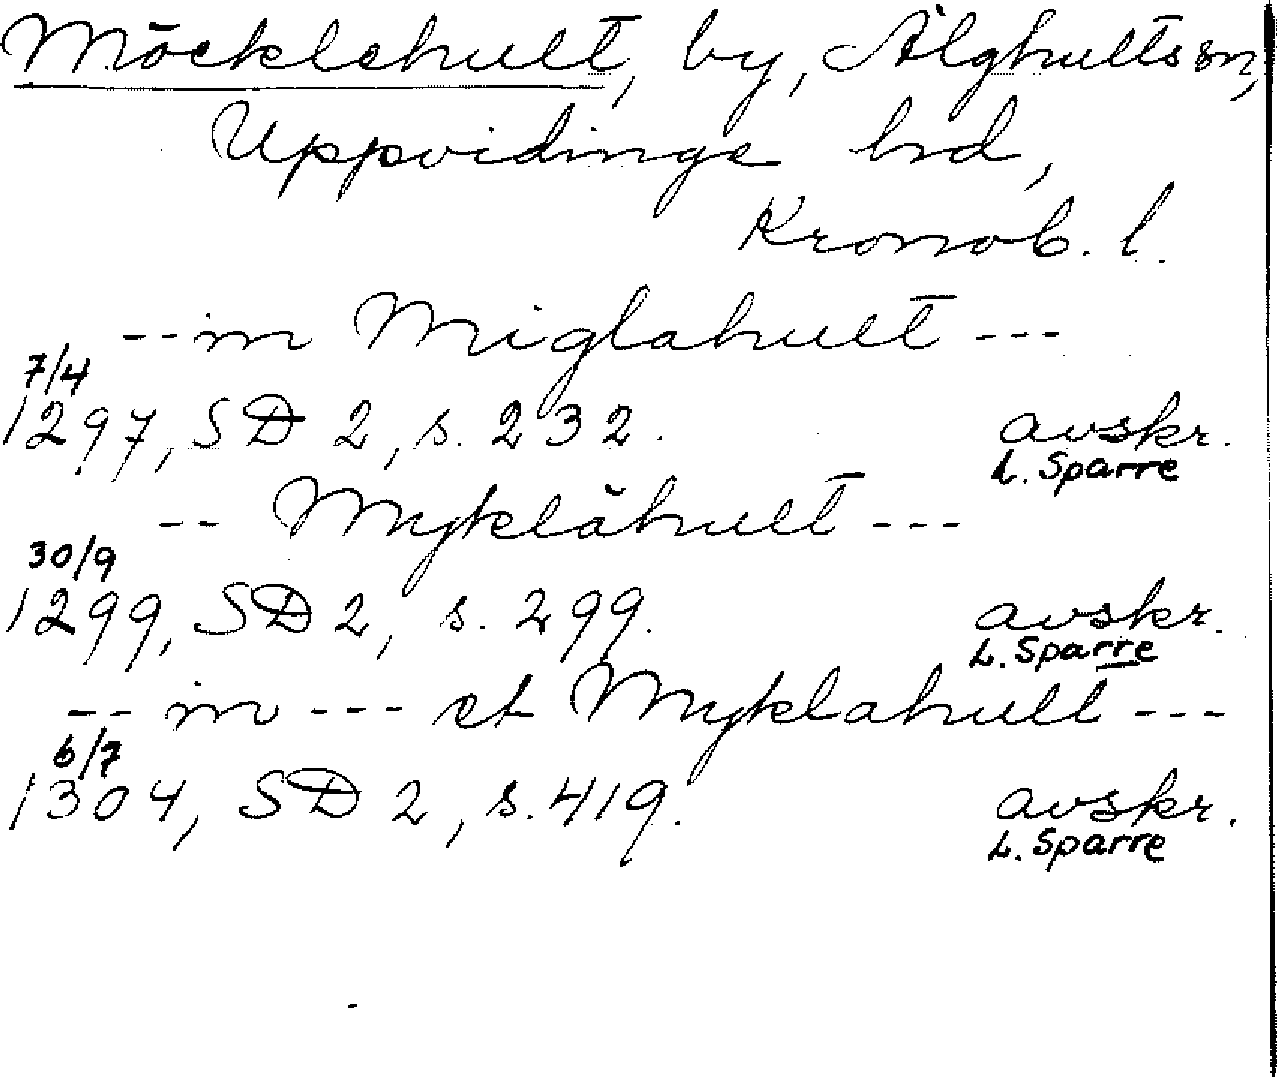 Möcklehult, by, Älghults sn,
Uppvidinge hd,
Kronob. l.
-- in Miglahult ---
7/4
1297, SD 2, s. 232. avskr.
L. Sparre
-- Myklåhult ---
30/9
1299, SD 2, s. 299. avskr.
L. Sparre
-- in --- et Myklahult ---
6/7
1304, SD 2, s. 419. avskr.
L. Sparre